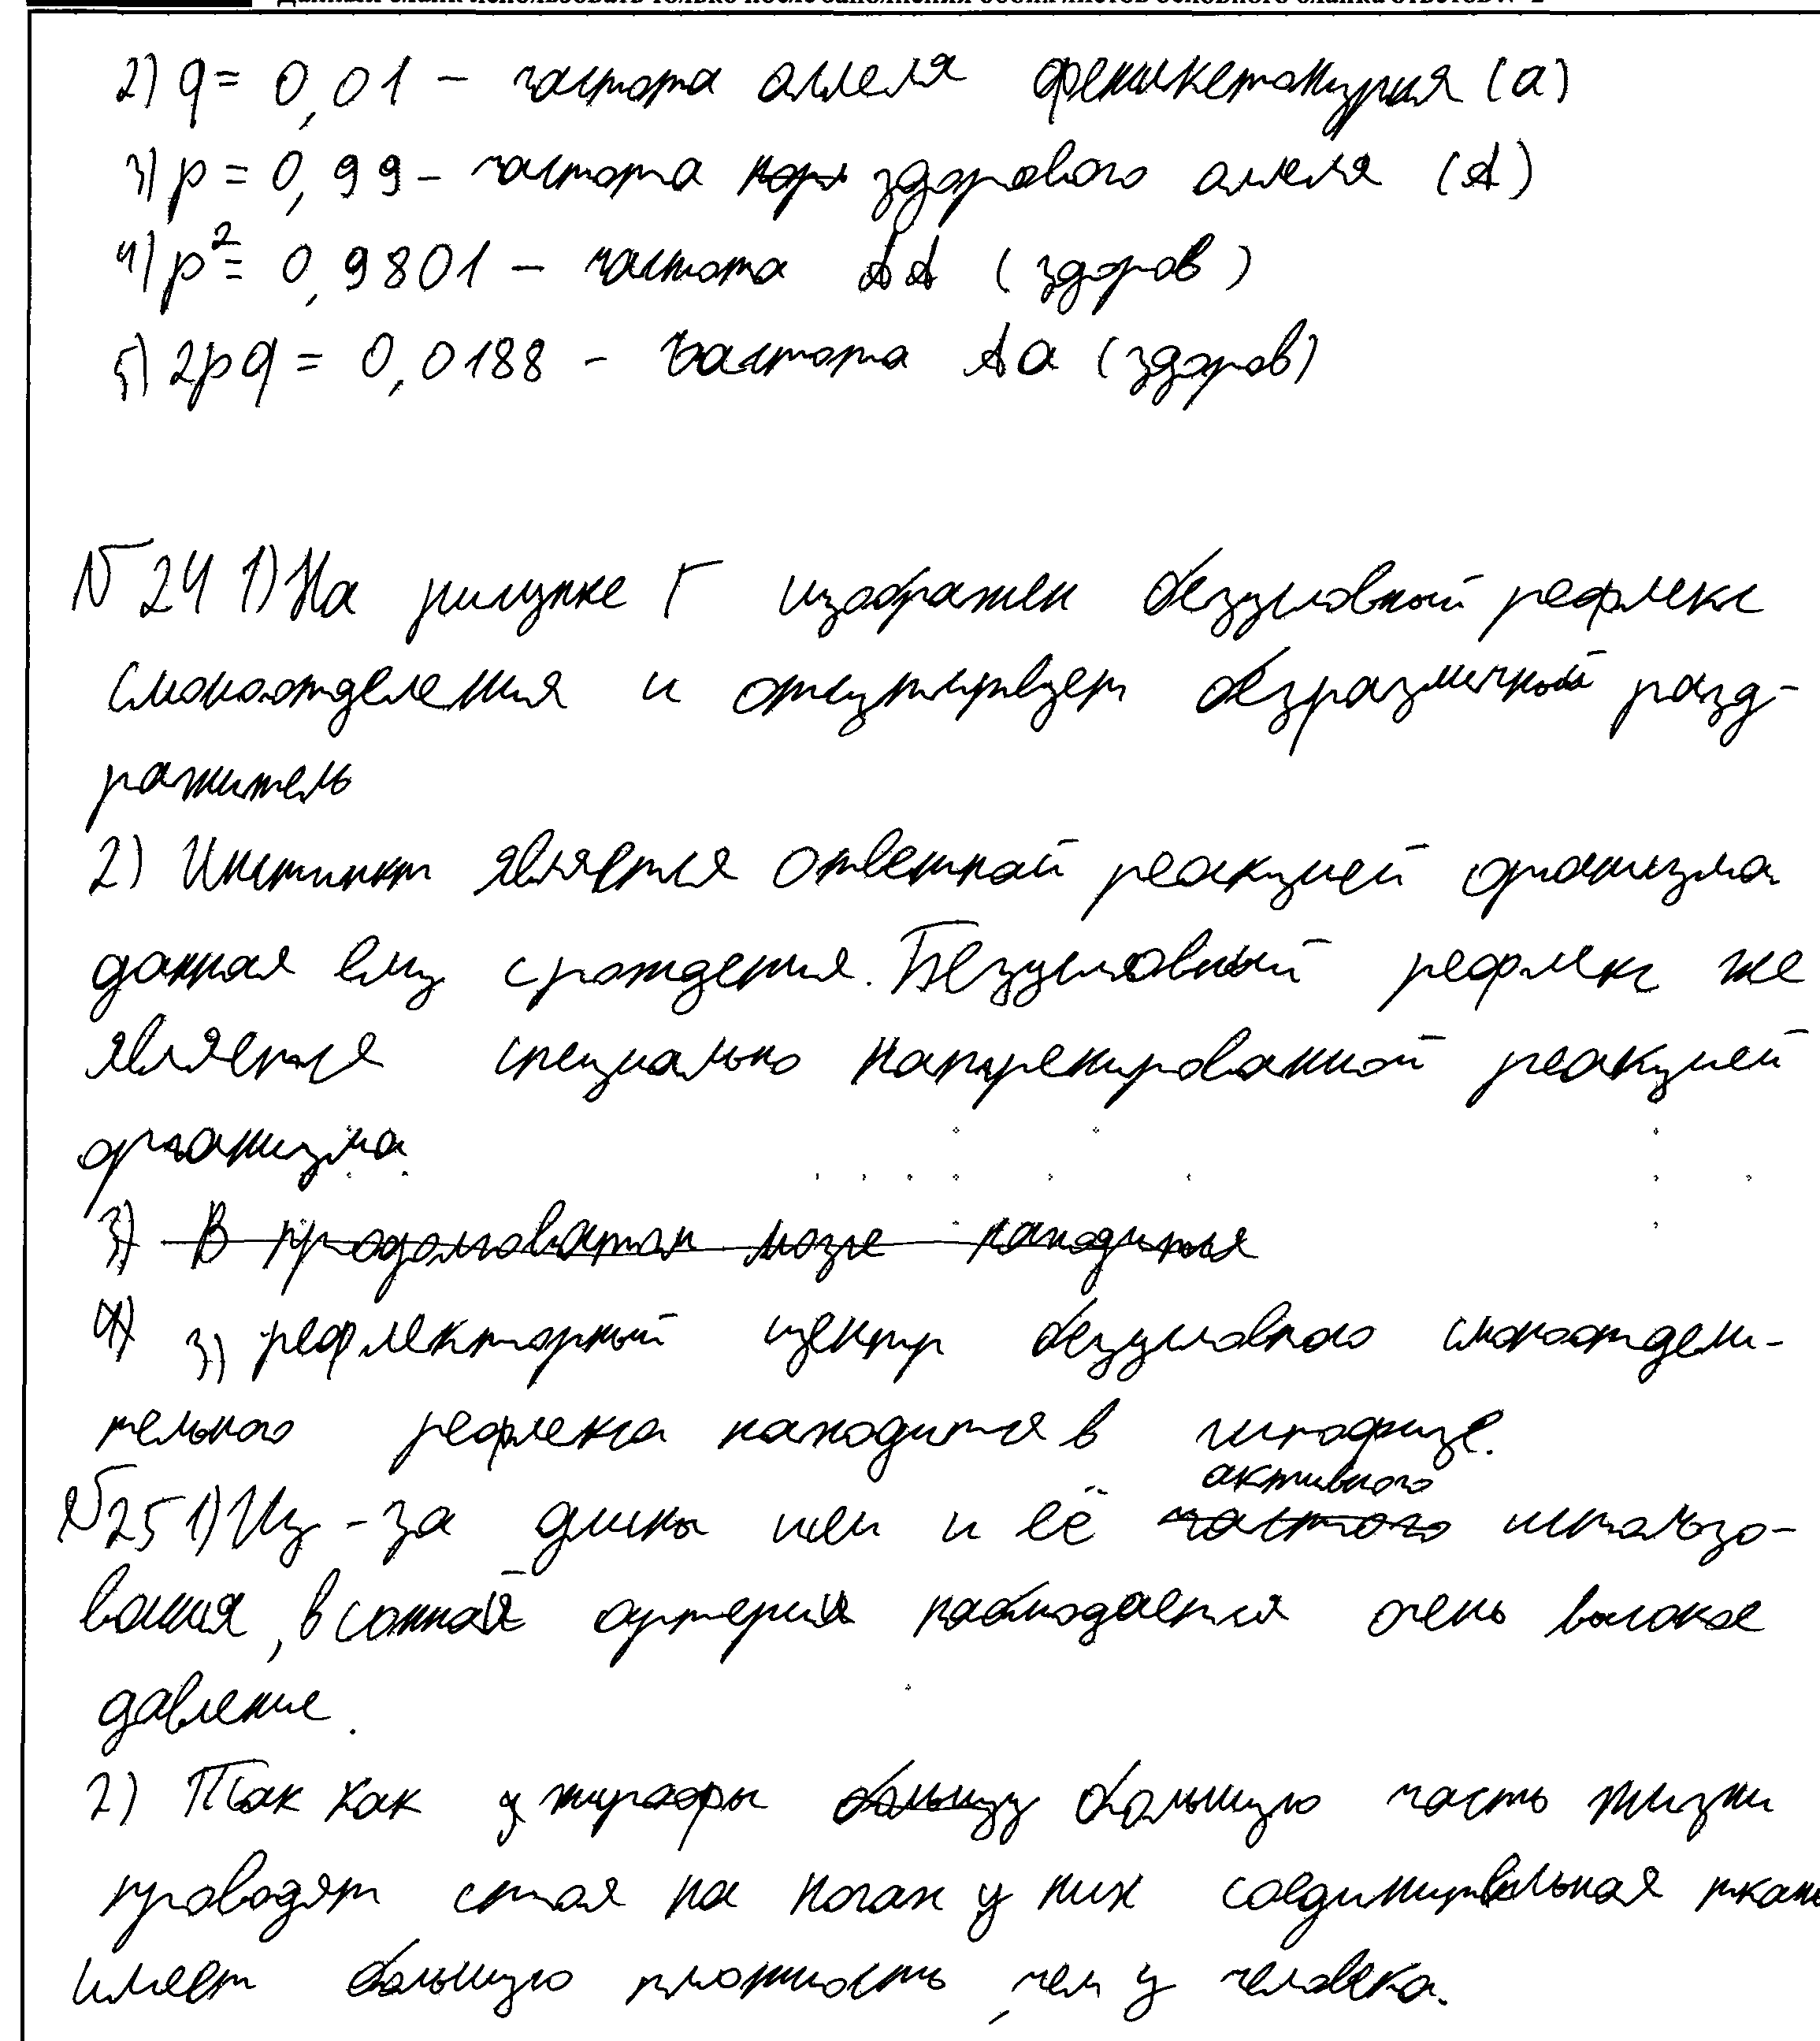 Данный бланк использовать только после заполнения обоих листов основного бланка ответов № 2
2) q = 0,01 – частота аллеля фенилкетонурия (а)
3) p = 0,99 – частота здорового аллеля (А)
4) p² = 0,9801 – частота АА (здоров)
5) 2pq = 0,0188 – частота Аа (здоров)
№24 1) На рисунке Г изображен безусловный рефлекс
слюноотделения и отсутствует безразличный разд-
ражитель
2) Инстинкт является ответной реакцией организма
данная ему с рождения. Безусловный рефлекс же
является специально натренированной реакцией
организма
3) В продолговатом мозге находится
4) 3) рефлекторный центр безусловного слюноотдели-
тельного рефлекса находится в гипофизе.
активного
№25 1) Из-за длины шеи и её частого использо-
вания, в сонной артерии наблюдается очень высокое
давление.
2) Так как у жирафы больщу большую часть жизни
проводят стоя на ногах у них соединительная ткань
имеет большую плотность, чем у человека.